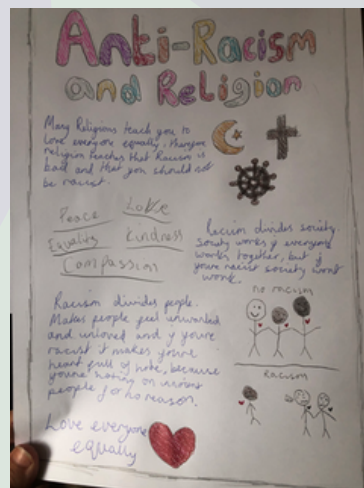 Anti-Racism
and Religion
Many Religions teach you to
love everyone equally, therefore
religion teaches that Racism is
bad and that you should not
be racist.
Peace Love
Equality Kindness
Compassion
Racism divides society.
Society works if everyone
works together, but if
you're racist society wont
work.
no racism
Racism
Racism divides people.
Makes people feel unwanted
and unloved and if you're
racist it makes you're
heart full of hate, because
you're hating on
people for no reason.
Love everyone
equally